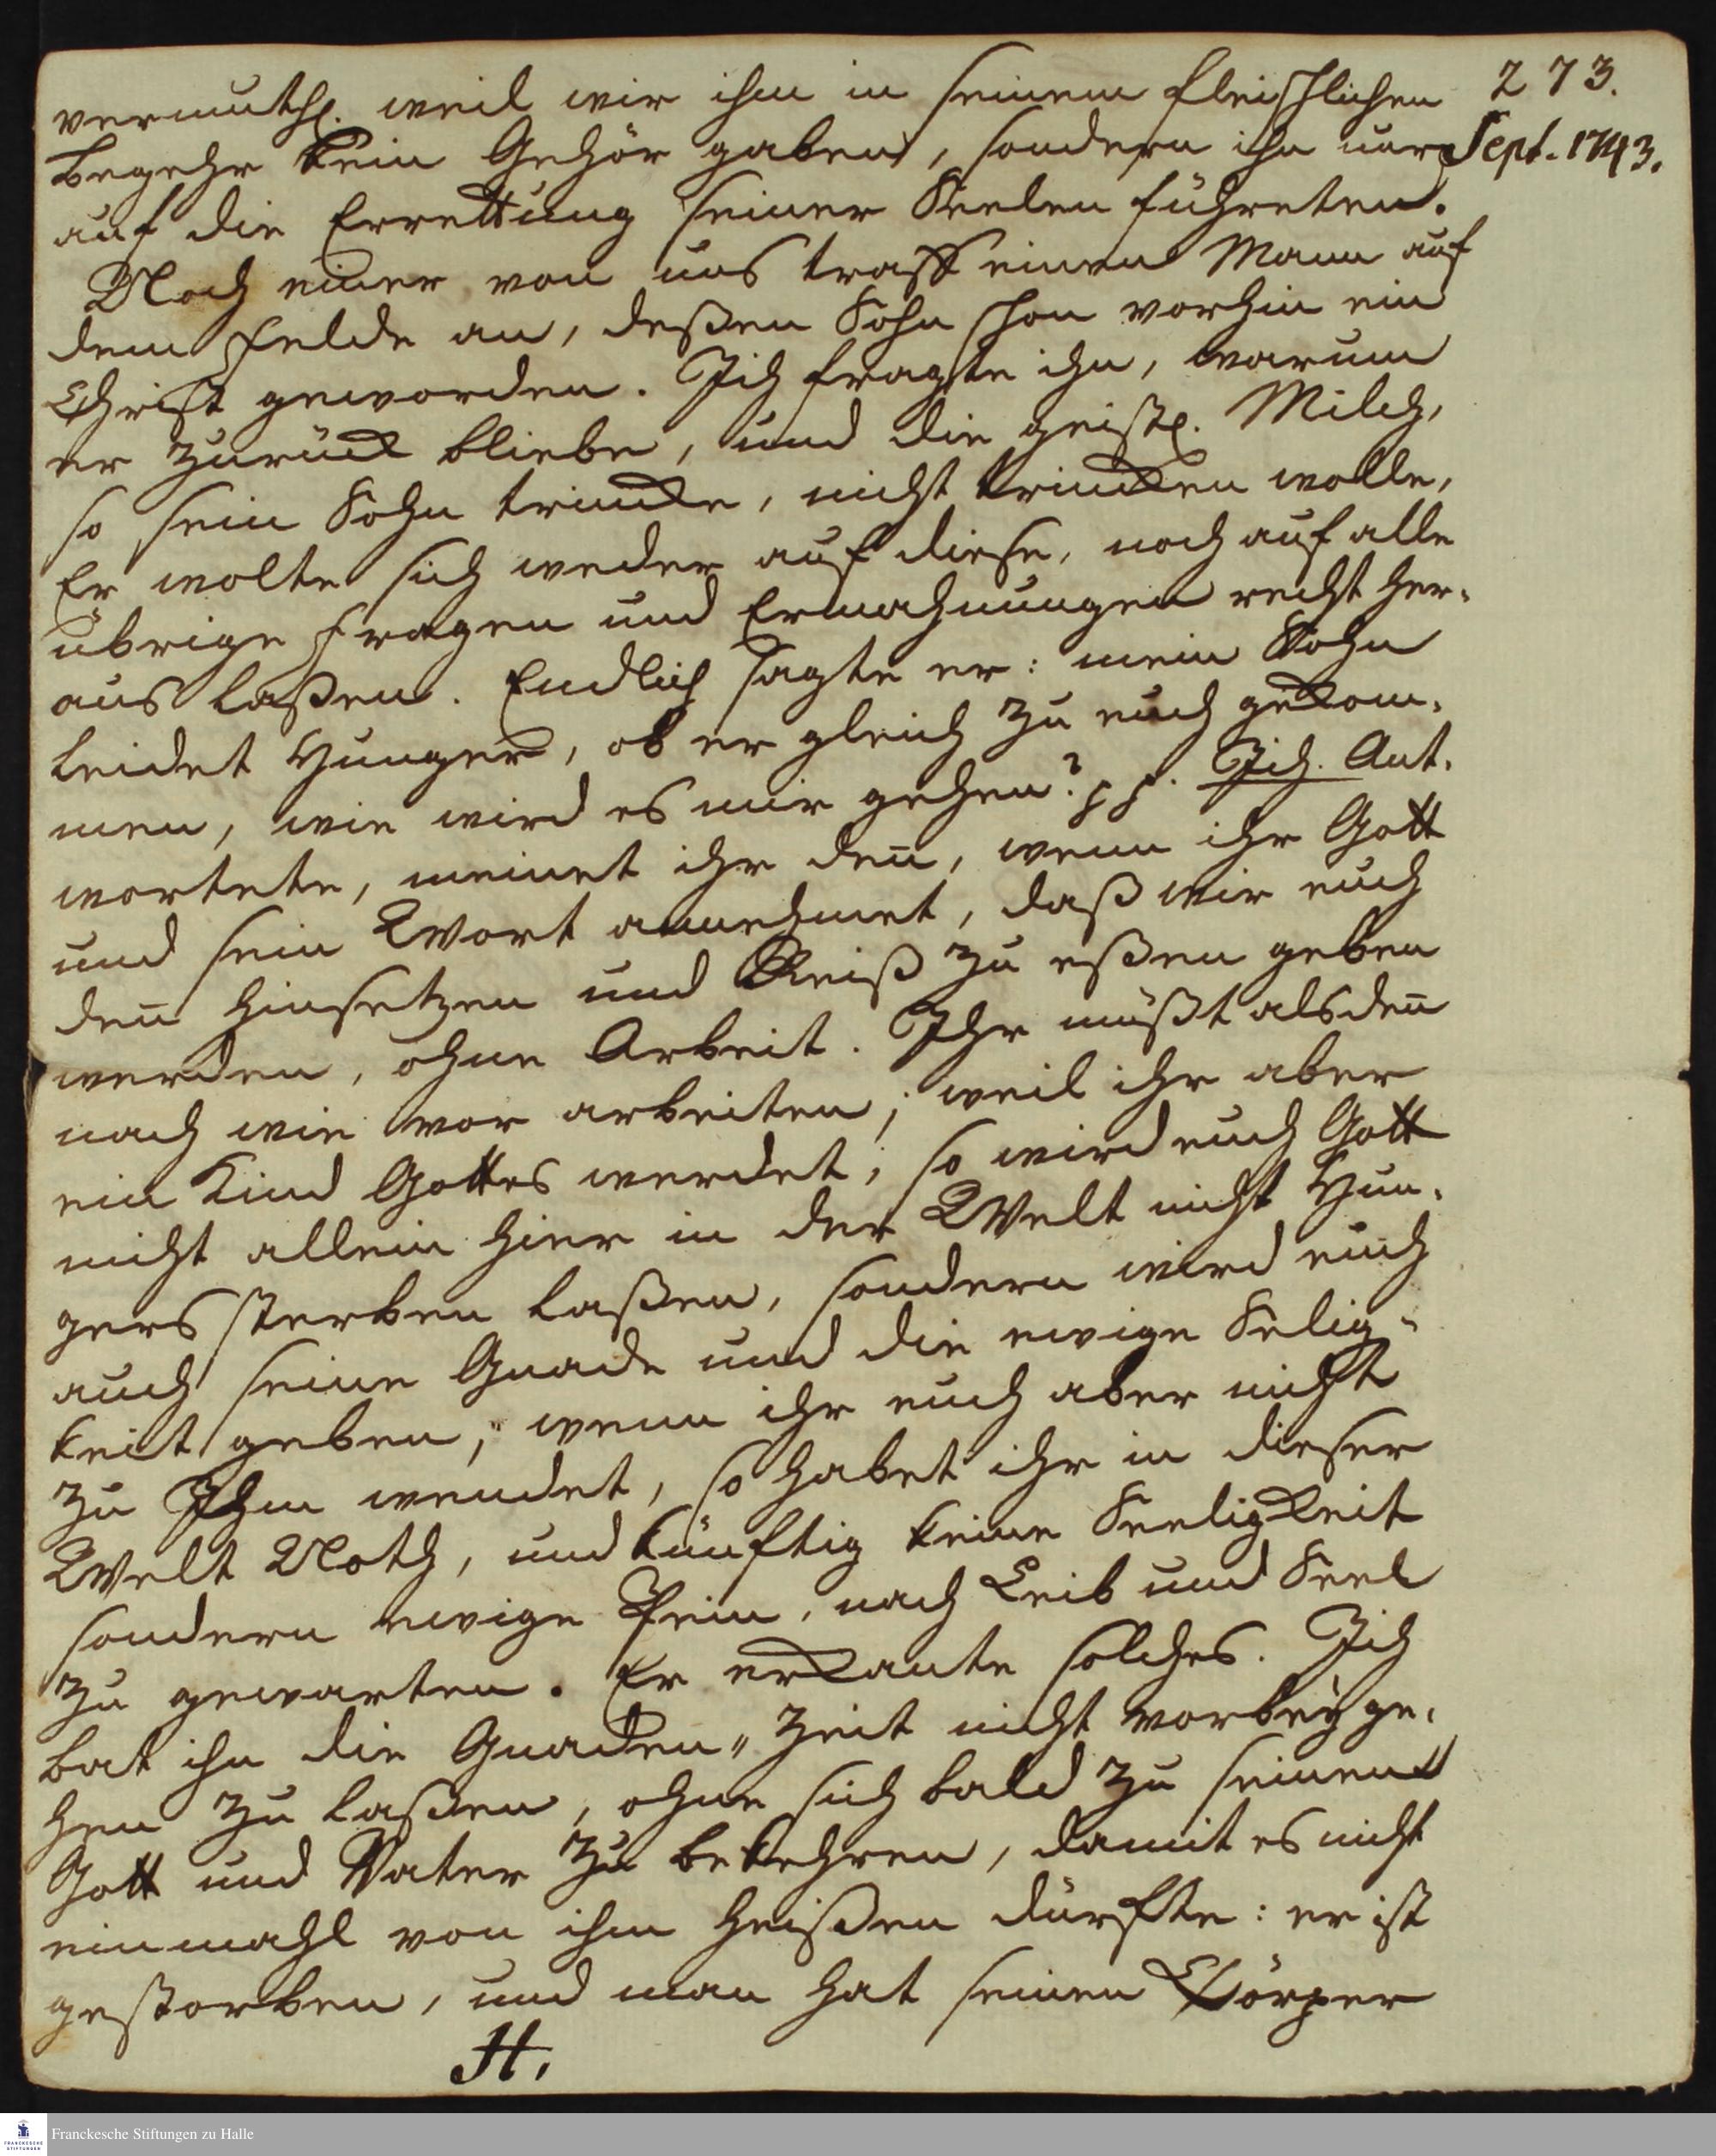 273.
Sept. 1743.
vermuthl. weil wir ihm in seinem fleischlichen
Begehr kein Gehör gaben, sondern ihn nur
auf die Errettung seiner Seelen führeten.
Noch einer von uns traff einen Mann auf
dem Felde an, deßen Sohn schon vorhin ein
Christ geworden. Ich fragte ihn, warum
er zurück bliebe, und die geistl. Milch,
so sein Sohn trincke, nicht trincken wolle,
Er wolte sich weder auf diese, noch auf alle
übrige Fragen und Ermahnungen recht her-
aus laßen. Endlich sagte er: mein Sohn
leidet Hunger, ob er gleich zu euch gekom-
men, wie wird es mir gehen? pp. Ich. Ant-
wortete, meinet ihr den̄, wenn ihr Gott
und sein Wort annehmet, daß wir euch
den̄ hinsetzen und Reiß zu eßen geben
werden, ohne Arbeit. Ihr müßt alsden̄
nach wie vor arbeiten; weil ihr aber
ein Kind Gottes werdet, so wird euch Gott
nicht allein hier in der Welt nicht Hun-
gers sterben laßen, sondern wird euch
auch seine Gnade und die ewige Selig-
keit geben; wenn ihr euch aber nicht
zu Ihm wendet, so habet ihr in dieser
Welt Noth, und künftig keine Seeligkeit
sondern ewige Pein, nach Leib und Seel
zu gewarten. Er erkante solches. Ich
bat ihn die Gnaden„Zeit nicht vorbeÿ ge-
hen zu laßen, ohne sich bald zu seinem
Gott und Vater zu bekehren, damit es nicht
einmahl von ihm heißen dürfte: er ist
gestorben, und man hat seinen Cörper
H.
Franckesche Stiftungen zu Halle